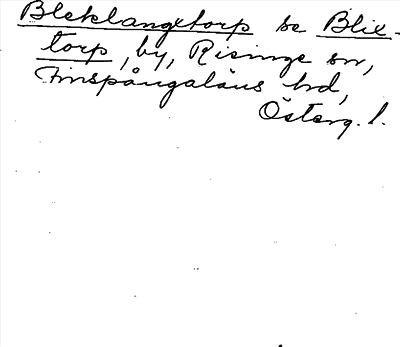 Bleklangetorp se Blix-
torp, by, Risinge sn,
Finspångaläns hd,
Österg. l.